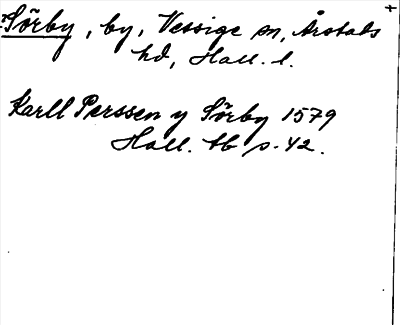 Sörby, by, Vessige sn, Årstads
hd, Hall. l.
Karll Perssen y Sörby 1579
Hall. tb s. 42.